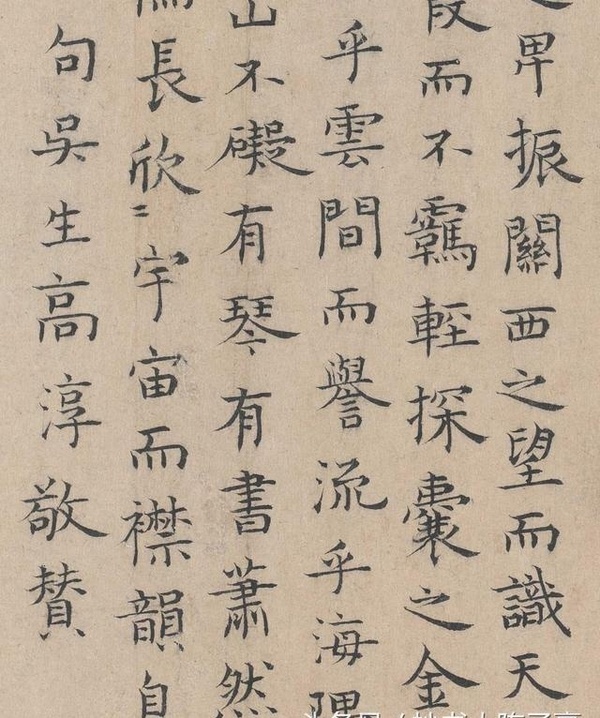 卑振關西之望而識天
段而不羈輕探囊之金
乎雲間而譽流乎海隅
山不礙有琴有書蕭然
長欣〻宇宙而襟韻自
句吳生高淳敬賛